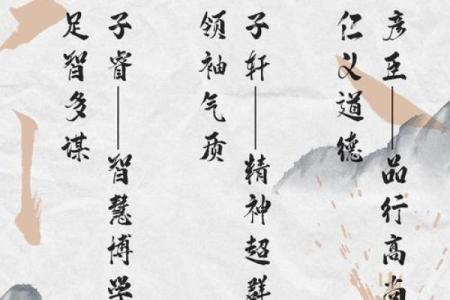 彦至——品行高尚
仁义道德
子轩——精神超群
领袖气质
子睿——智慧博学
足智多谋